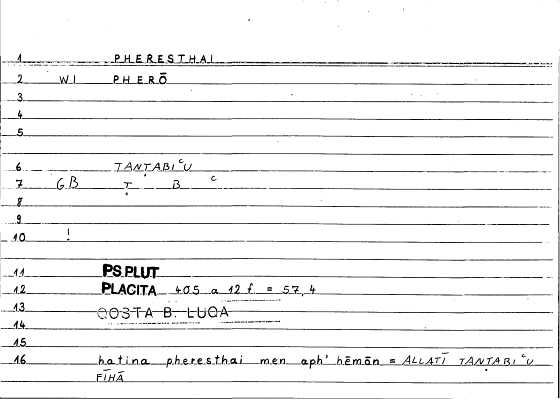 1 PHERESTHAI
2 WI PHERŌ
3
4
5
6 TANṬABIʿU
7 GB Ṭ B ʿ
8
9
10 !
11 PS.PLUT
12 PLACITA 405 a 12 f. = 57,4
13 QOSTA B. LUQA
14
15
16 hatina pheresthai men aph' hēmōn = ALLATĪ TANṬABIʿU
FĪHĀ